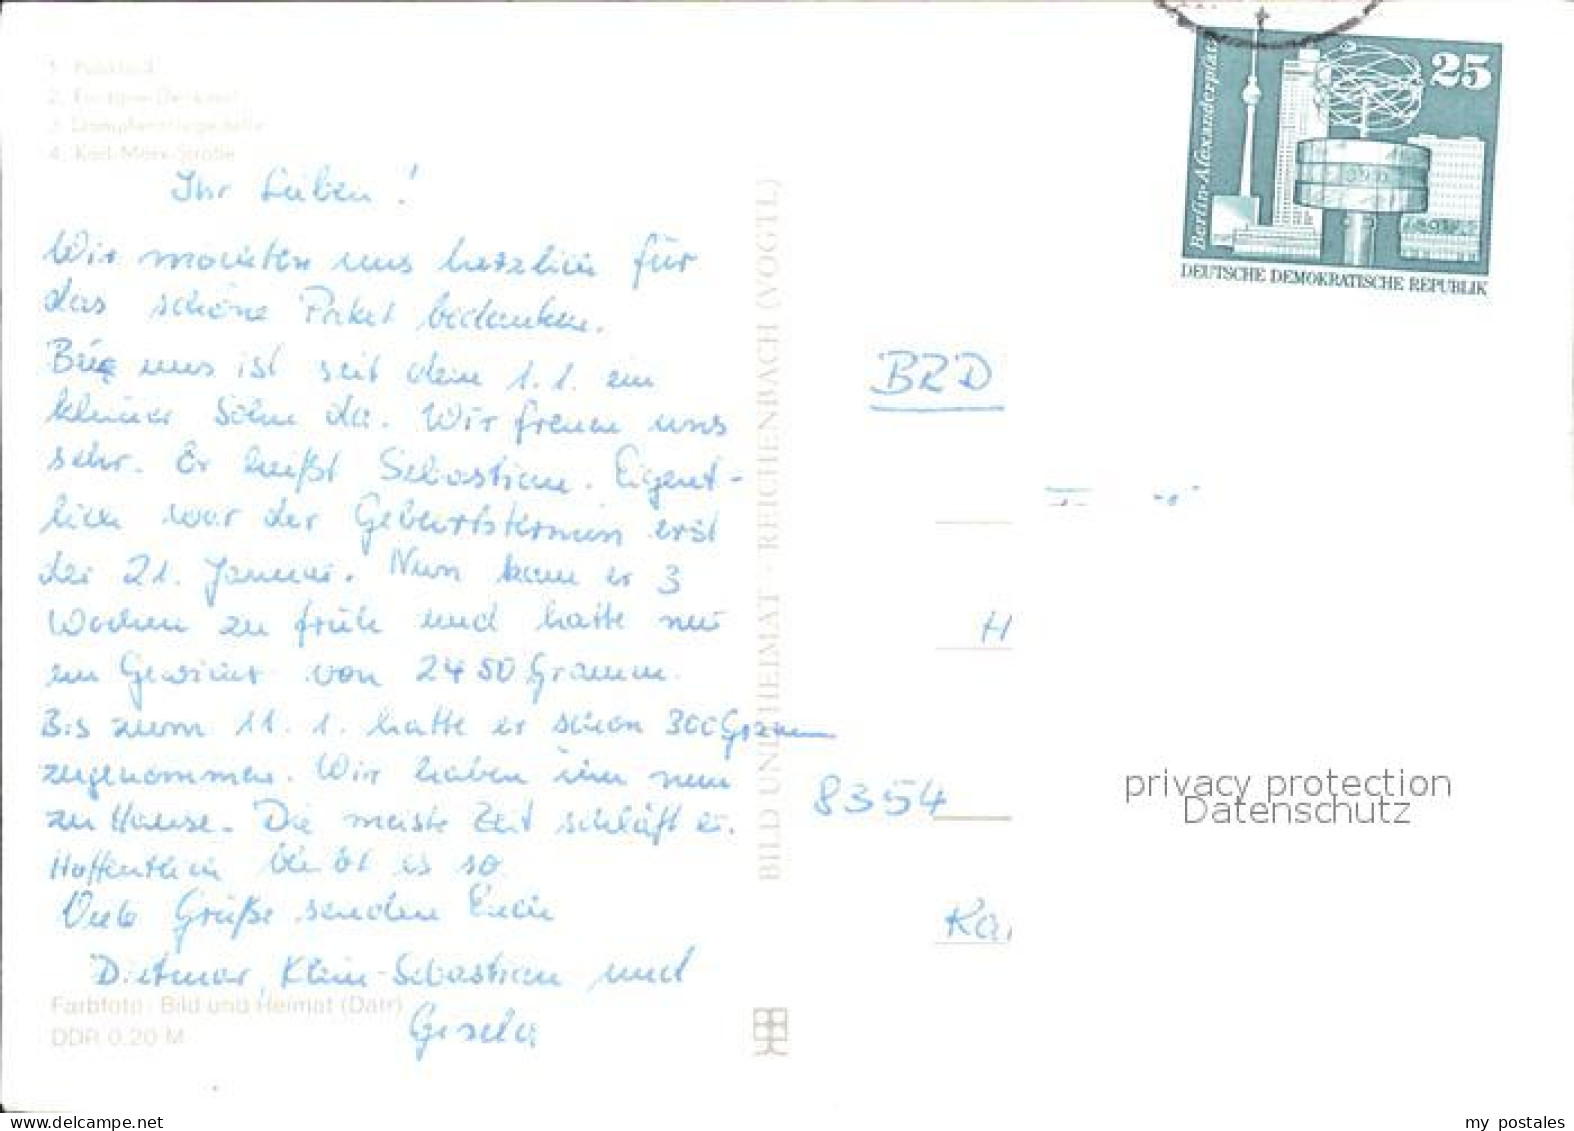 1. Parkhof
2. Fontane-Denkmal
3. Dampferanlegestelle
4. Karl-Marx-Straße
Ihr Lieben!
Wir möchten uns herzlich für
das schöne Paket bedanken.
Bei uns ist seit dem 1.1. ein
kleiner Sohn da. Wir freuen uns
sehr. Er heißt Sebastian. Eigent-
lich war der Geburtstermin erst
der 21. Januar. Nun kam er 3
Wochen zu früh und hatte nur
ein Gewicht von 2450 Gramm.
Bis zum 11.1. hatte er schon 300 Gramm
zugenommen. Wir haben ihn nun
zu Hause. Die meiste Zeit schläft er.
Hoffentlich bleibt es so
Viele Grüße senden Euch
Dietmar, Klein-Sebastian und
Gisela
Farbfoto: Bild und Heimat (Datr)
DDR 0,20 M
BILD UND HEIMAT · REICHENBACH (VOGTL)
Berlin-Alexanderplatz
25
DEUTSCHE DEMOKRATISCHE REPUBLIK
BRD
H
8354
Ka
privacy protection
Datenschutz
my postales
www.delcampe.net